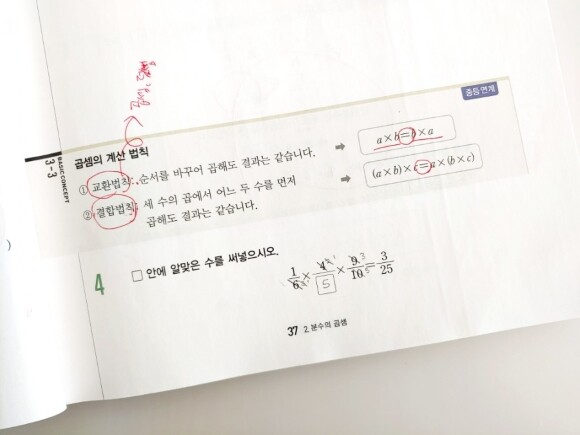 덧셈, 곱셈
중등연계
3-3
BASIC CONCEPT
곱셈의 계산 법칙
① 교환법칙: 순서를 바꾸어 곱해도 결과는 같습니다. ➡ a×b=b×a
② 결합법칙: 세 수의 곱에서 어느 두 수를 먼저 ➡ (a×b)×c=a×(b×c)
곱해도 결과는 같습니다.
4 □ 안에 알맞은 수를 써넣으시오.
1/6 × 4/5 × 9/10 = 3/25
37 2. 분수의 곱셈